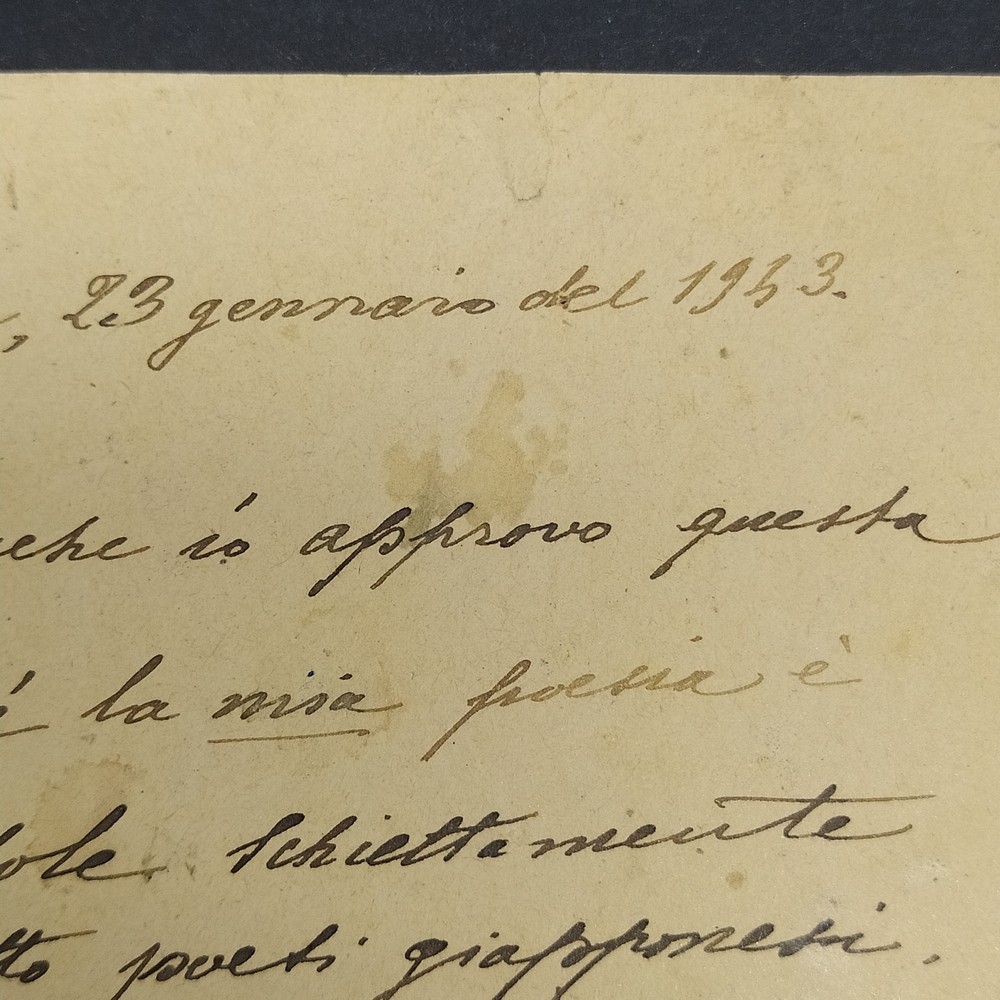 , 23 gennaio del 1943.
che io approvo questa
la mia poesia è
schiettamente
poeti giapponesi.